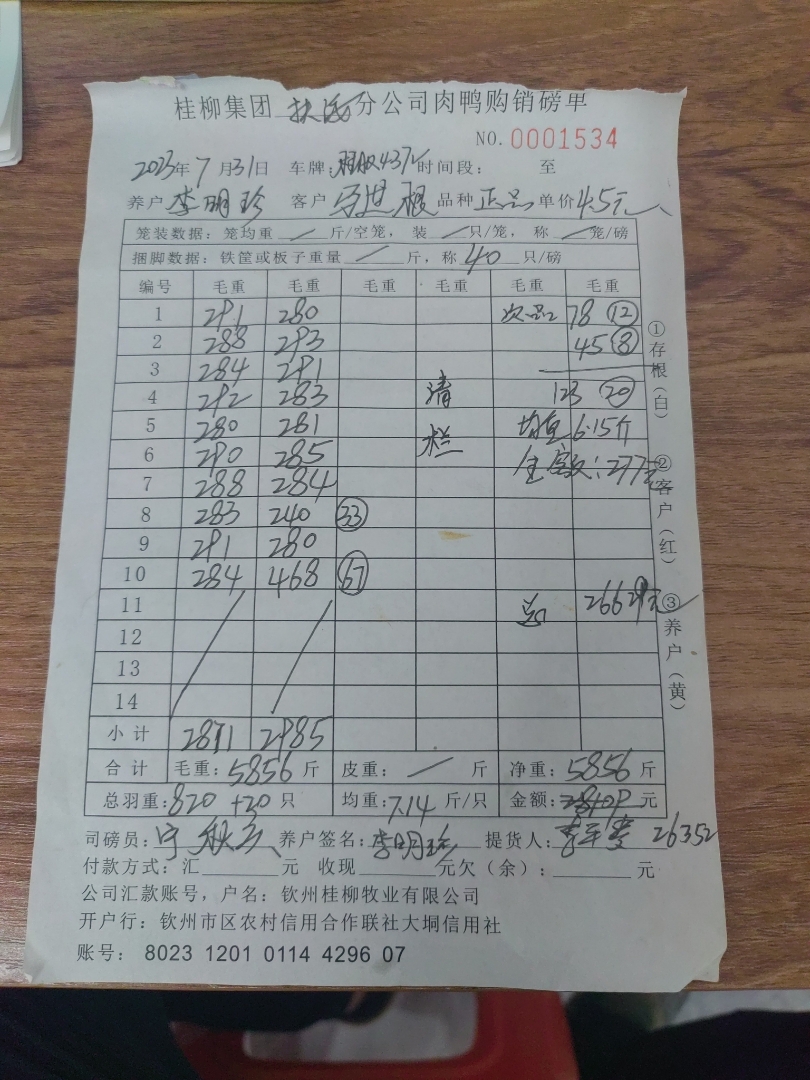 桂柳集团 扶绥 分公司肉鸭购销磅单
NO. 0001534
2023年 7 月 31 日 车牌: 437 时间段: 至
养户 李明珍 客户 根 品种 正品 单价 4.5元
笼装数据: 笼均重 / 斤/空笼, 装 / 只/笼, 称 / 笼/磅
捆脚数据: 铁筐或板子重量 / 斤, 称 40 只/磅
编号 毛重 毛重 毛重 毛重 毛重 毛重
1 291 280 次品: 78 ⑫
2 288 293 45 ⑧
3 284 291
4 292 283 清 123 ⑳
5 280 281 栏 均重 6.15斤
6 290 285 金额: 277元
7 288 284
8 283 240 ㉝
9 291 280
10 284 468 (67)
11 总 26629元
12
13
14
小计 2871 2985
合计 毛重: 5856 斤 皮重: / 斤 净重: 5856 斤
总羽重: 820 +20 只 均重: 7.14 斤/只 金额: 元
司磅员: 养户签名: 李明珍 提货人: 26352
付款方式: 汇 元 收现 元欠(余): 元
公司汇款账号, 户名: 钦州桂柳牧业有限公司
开户行: 钦州市区农村信用合作联社大垌信用社
账号: 8023 1201 0114 4296 07
①存根(白) ②客户(红) ③养户(黄)